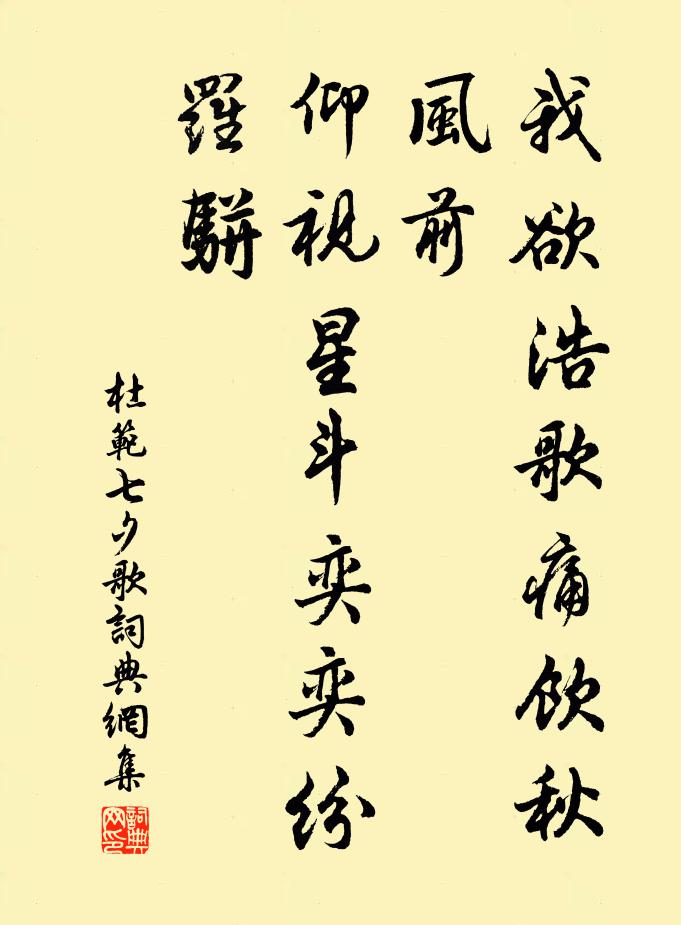 我欲浩歌痛飲秋
風前
仰視星斗奕奕紛
羅駢
杜範七夕歌詞典網集
詞典
网印